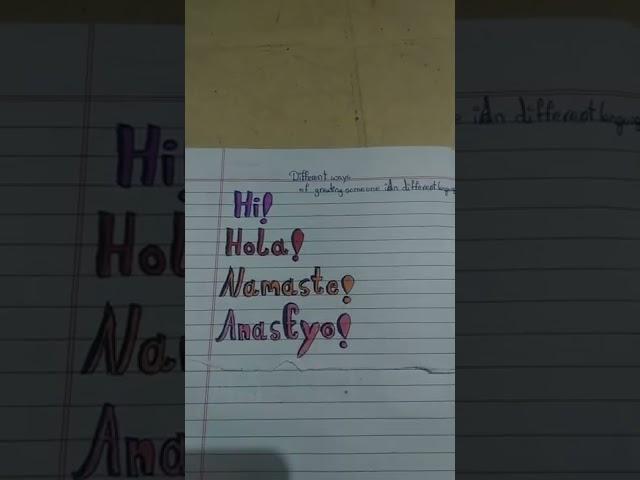 Different ways
of greeting someone in different language
Hi!
Hola!
Namaste!
AnasEyo!